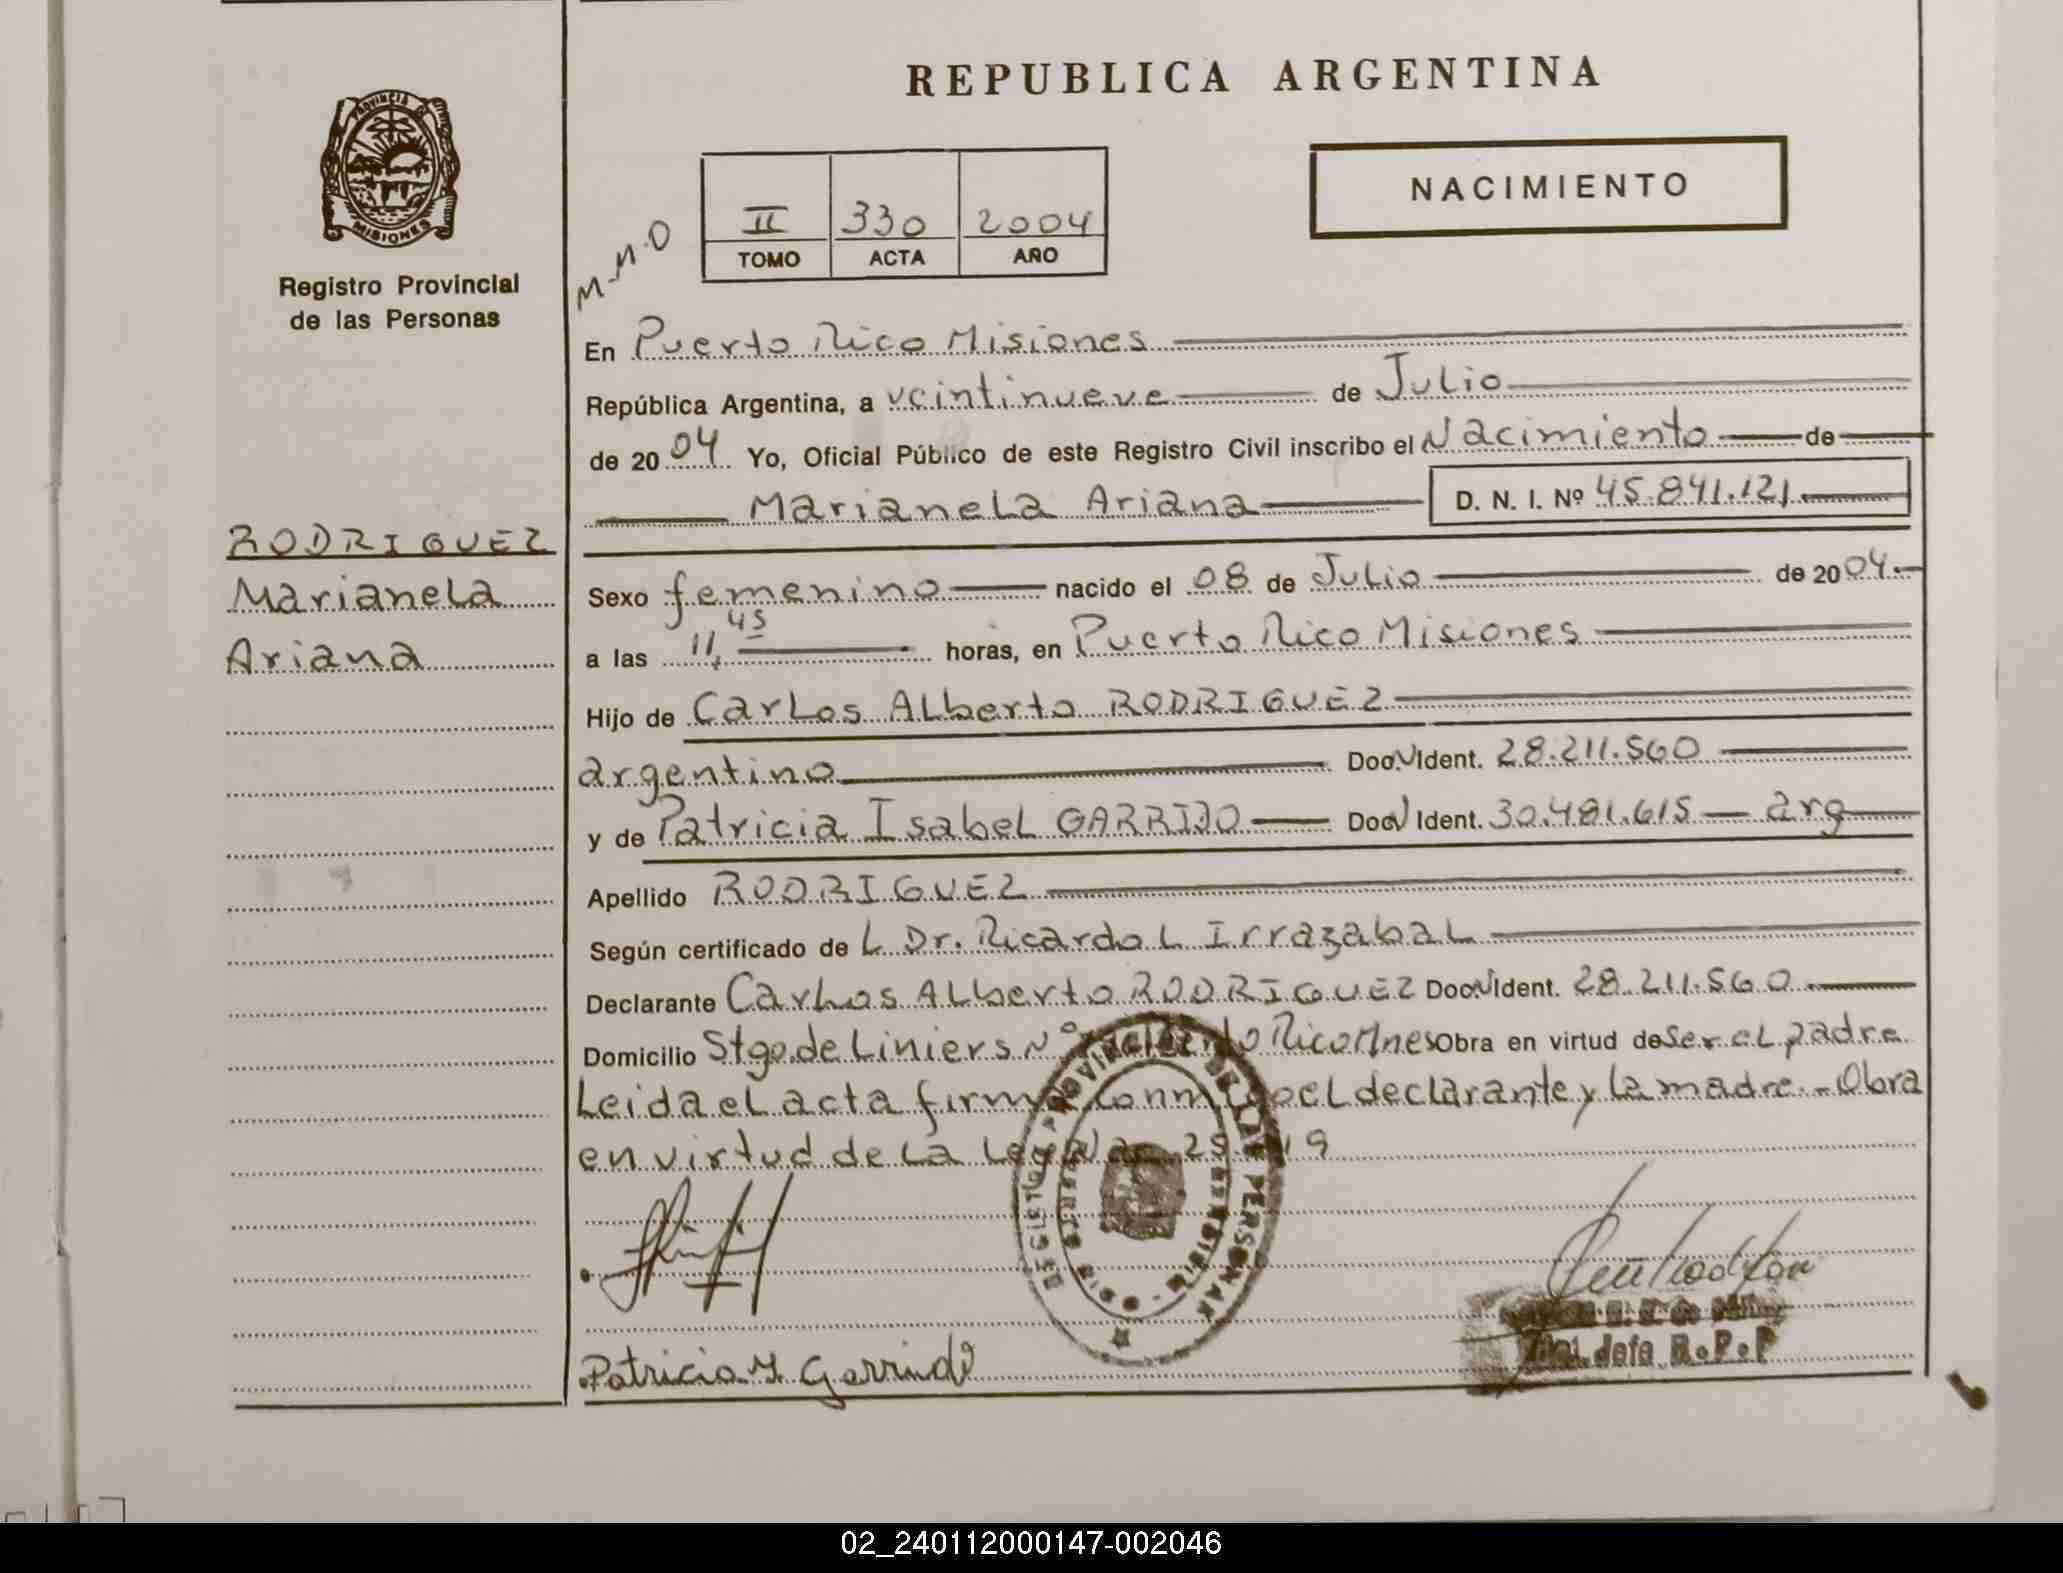 REPUBLICA ARGENTINA
NACIMIENTO
PROVINCIA DE
MISIONES
Registro Provincial
de las Personas
M-M.O
II 330 2004
TOMO ACTA AÑO
En Puerto Rico Misiones
República Argentina, a veintinueve de Julio
de 2004 Yo, Oficial Público de este Registro Civil inscribo el Nacimiento de
Marianela Ariana D. N. I. Nº 45.841.121
RODRIGUEZ
Marianela
Ariana
Sexo femenino nacido el 08 de Julio de 2004
a las 11,45 horas, en Puerto Rico Misiones
Hijo de Carlos Alberto RODRIGUEZ
argentino Doc. Ident. 28.211.560
y de Patricia Isabel GARRIDO Doc. Ident. 30.481.615 arg
Apellido RODRIGUEZ
Según certificado de L Dr. Ricardo L Irrazabal
Declarante Carlos Alberto RODRIGUEZ Doc. Ident. 28.211.560
Domicilio Stgo. de Liniers Nº Rico Mnes Obra en virtud de Ser el padre
Leida el acta firma conmigo el declarante y la madre.- Obra
en virtud de la Ley
REGISTRO PROVINCIAL DE LAS PERSONAS
Patricia I. Garrido
Jefe R.P.P
02_240112000147-002046